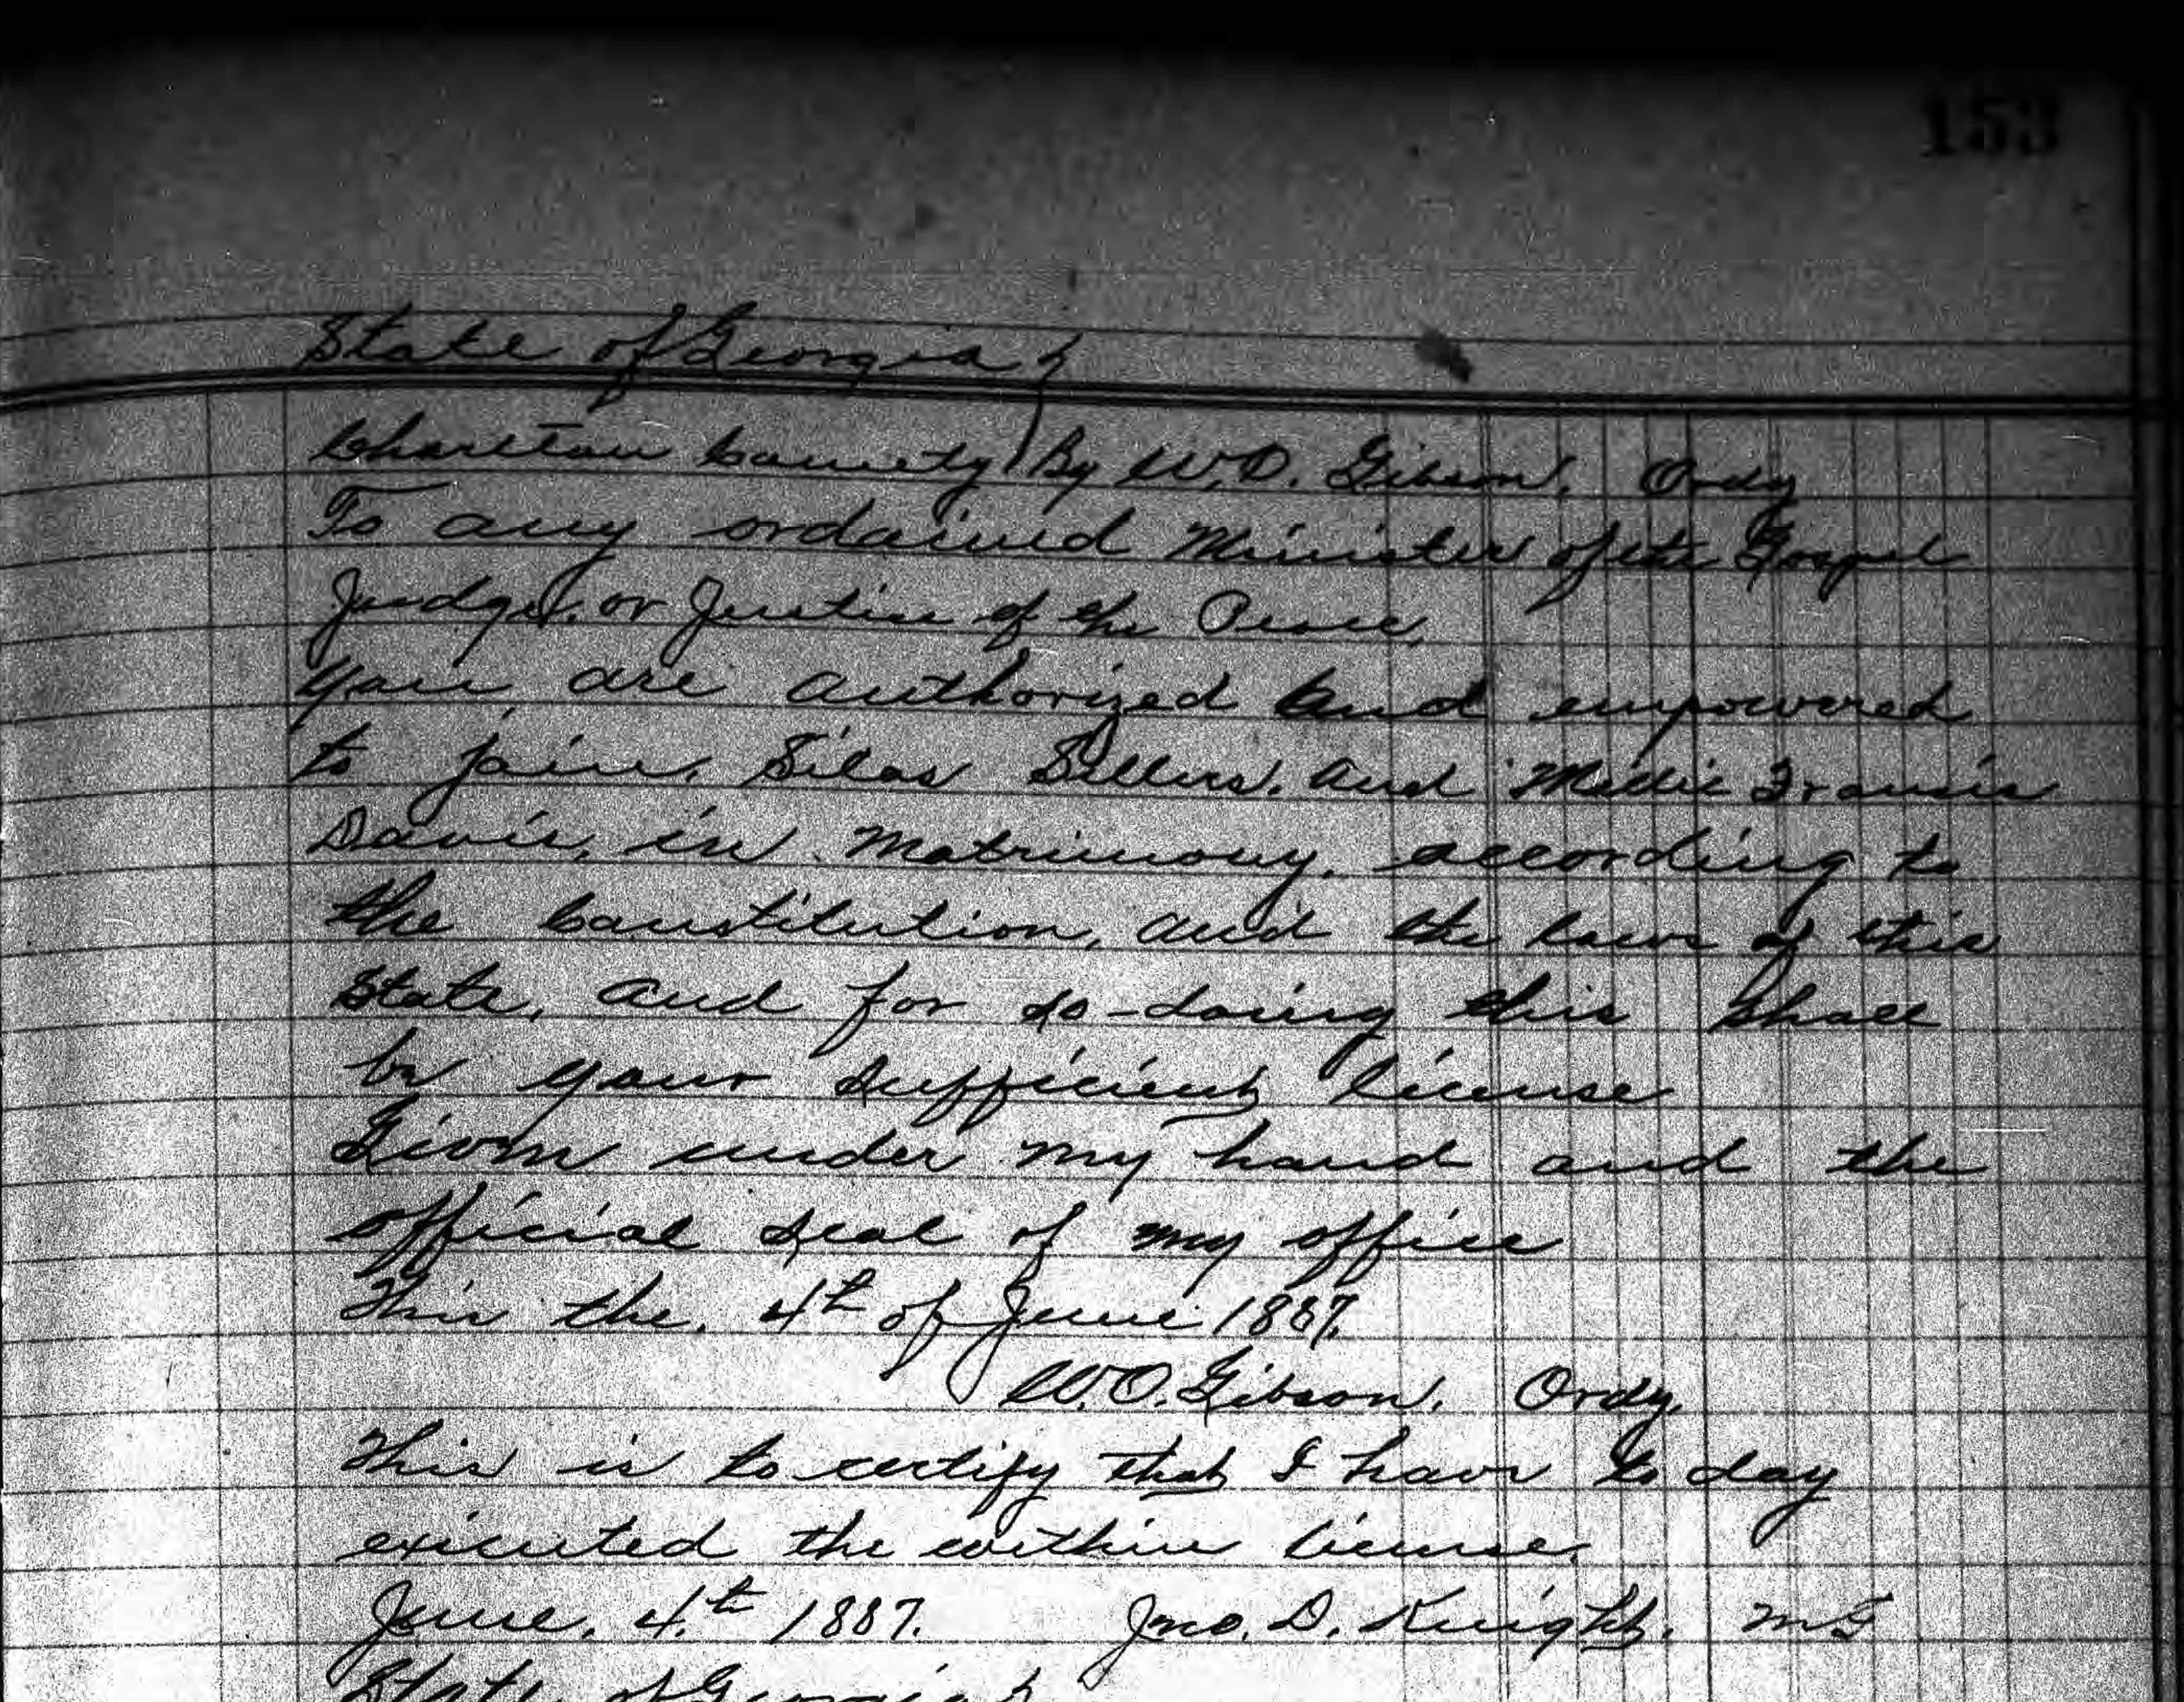 153
State of Georgia }
Charlton County } By W. O. Gibson. Ordy
To any ordained Minister of the Gospel
Judge. or Justice of the Peace,
You are authorized and empowered
to join, Silas Sellers. and Medie Francis
Davis, in Matrimony, according to
the Constitution, and the laws of this
State, and for so-doing this shall
be your sufficient license
Given under my hand and the
official seal of my office
This the. 4th of June 1887.
W. O. Gibson. Ordy.
This is to certify that I have to day
executed the within license.
June. 4.th 1887. Jno. D. Knight. M G
State of Georgia }